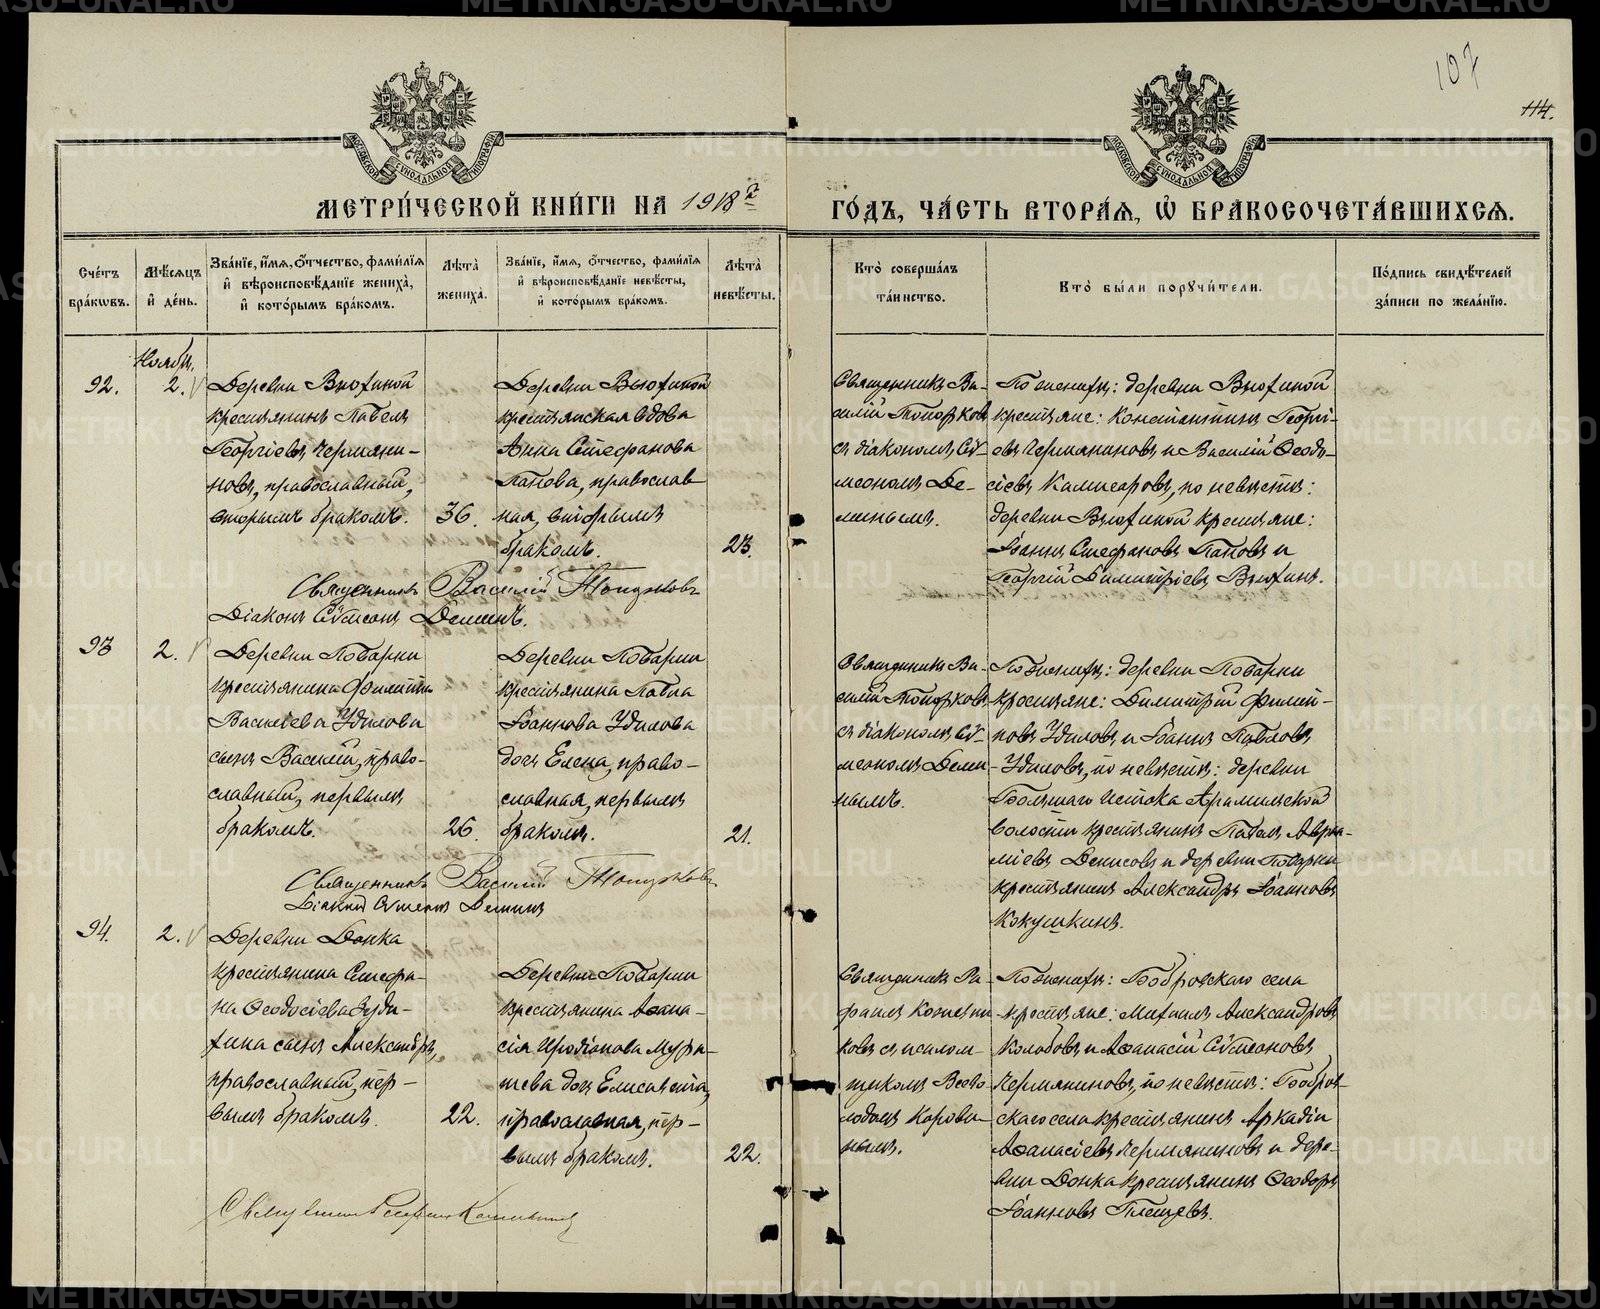 107
114.
МЕТРИ́ЧЕСКОЙ КНИ́ГИ НА 1918 г
ГО́ДЪ, ЧА́СТЬ ВТОРА́Я, Ѡ БРАКОСОЧЕТА́ВШИХСЯ.
Сче́тъ бра́кѡвъ.
Мѣ́сяцъ и҆ де́нь.
Зва́нїе, и҆́мя, ѻ҆́тчество, фами́лїя и҆ вѣроисповѣ́данїе жениха̀, и҆ кото́рымъ бра́комъ.
Лѣ́та жениха̀.
Зва́нїе, и҆́мя, ѻ҆́тчество, фами́лїя и҆ вѣроисповѣ́данїе невѣ́сты, и҆ кото́рымъ бра́комъ.
Лѣ́та невѣ́сты.
Кто̀ соверша́лъ та́инство.
Кто̀ бы́ли порꙋчи́тели.
По́дпись свидѣ́телей за́писи по жела́нїю.
Ноябрь.
92.
2.
Деревни Вьюхиной
крестьянинъ Павелъ
Георгіевъ Чермяни-
новъ, православный,
вторымъ бракомъ.
36.
Деревни Вьюхиной
крестьянская вдова
Анна Стефанова
Попова, православ
ная, вторымъ
бракомъ.
23.
Священникъ Ва-
силій Топорковъ
съ діакономъ Сѵ-
меономъ Де-
минымъ.
По женихѣ: деревни Вьюхиной
крестьяне: Константинъ Георгі-
евъ Чермяниновъ и Василій Ѳеодо-
сіевъ Комисаровъ, по невѣстѣ:
деревни Вьюхиной крестьяне:
Іоаннъ Стефановъ Поповъ и
Георгій Димитріевъ Вьюхинъ.
Священникъ Василій Топорковъ
Діаконъ Сѵмеонъ Деминъ.
93
2.
Деревни Поварни
крестьянина Филиппа
Васильева Удилова
сынъ Василій, право-
славный, первымъ
бракомъ.
26.
Деревни Поварни
крестьянина Павла
Іоаннова Удилова
дочь Елена, право-
славная, первымъ
бракомъ.
21.
Священникъ Ва-
силій Топорковъ
съ діакономъ Сѵ-
меономъ Деми-
нымъ.
По женихѣ: деревни Поварни
крестьяне: Димитрій Филип-
повъ Удиловъ и Іоаннъ Павловъ
Удиловъ, по невѣстѣ: деревни
Большаго Истока Арамильской
волости крестьянинъ Павелъ Авра-
міевъ Денисовъ и деревни Поварни
крестьянинъ Александръ Іоанновъ
Кокушкинъ.
Священникъ Василій Топорковъ
Діаконъ Сѵмеонъ Деминъ
94.
2.
Деревни Донка
крестьянина Стефа-
на Ѳеодосіева
сынъ Александръ,
православный, пер-
вымъ бракомъ.
22.
Деревни Поварни
крестьянина Аѳана-
сія Иродіонова
дочь Елисавета,
православная, пер-
вымъ бракомъ.
22.
Священникъ Ра-
фаилъ
съ псалом-
щикомъ Всево-
лодомъ Корови-
нымъ.
По женихѣ: Бобровскаго села
крестьяне: Михаилъ Александровъ
Колобовъ и Аѳанасій Сѵмеоновъ
Чермяниновъ, по невѣстѣ: Бобров-
скаго села крестьянинъ Аркадій
Аѳанасіевъ Чермяниновъ и дере-
вни Донка крестьянинъ Ѳеодоръ
Іоанновъ Плещевъ.
Священникъ Рафаилъ